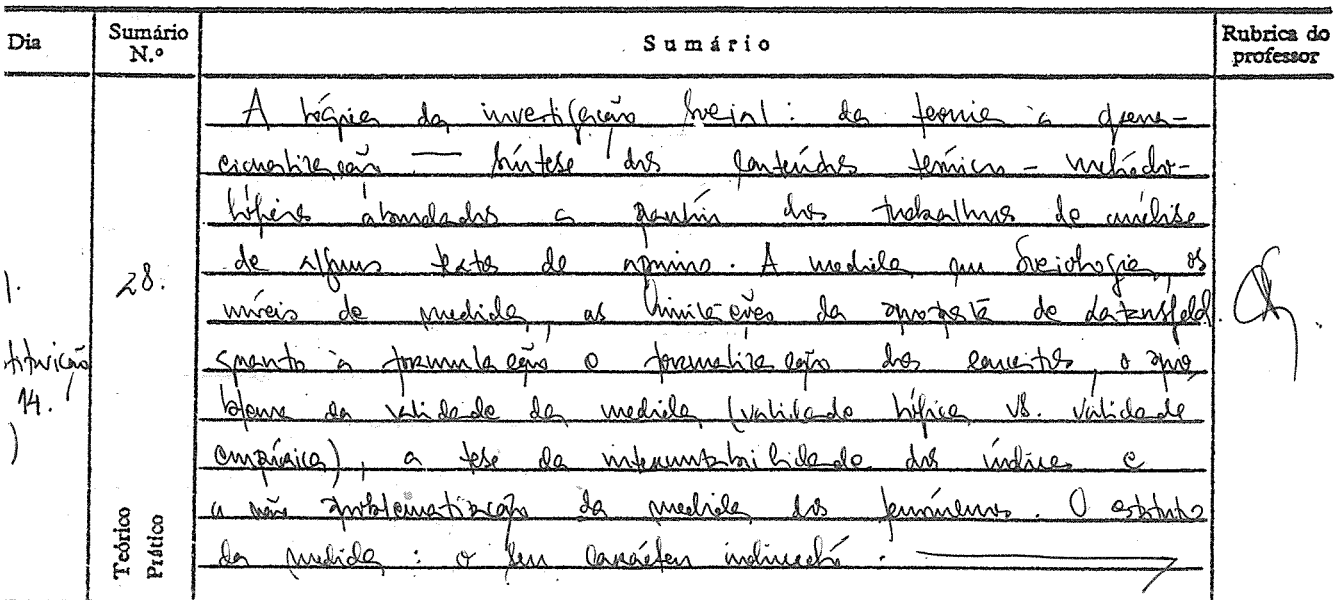 Dia
Sumário N.º
Sumário
Rubrica do professor
A lógica da investigação social: da teoria à opera-
cionalização — Síntese dos conteúdos teórico-metodo-
lógicos abordados a partir dos trabalhos de análise
de alguns textos de apoio. A medida em Sociologia, os
níveis de medida, as limitações da proposta de Lazarsfeld
quanto à formulação e formalização dos conceitos, o pro
blema da validade da medida (validade lógica vs. validade
empírica), a tese da intermutabilidade dos índices e
a não problematização da medida dos fenómenos. O estatuto
da medida: o seu carácter indirecto.
28.
14.
)
Teórico
Prático